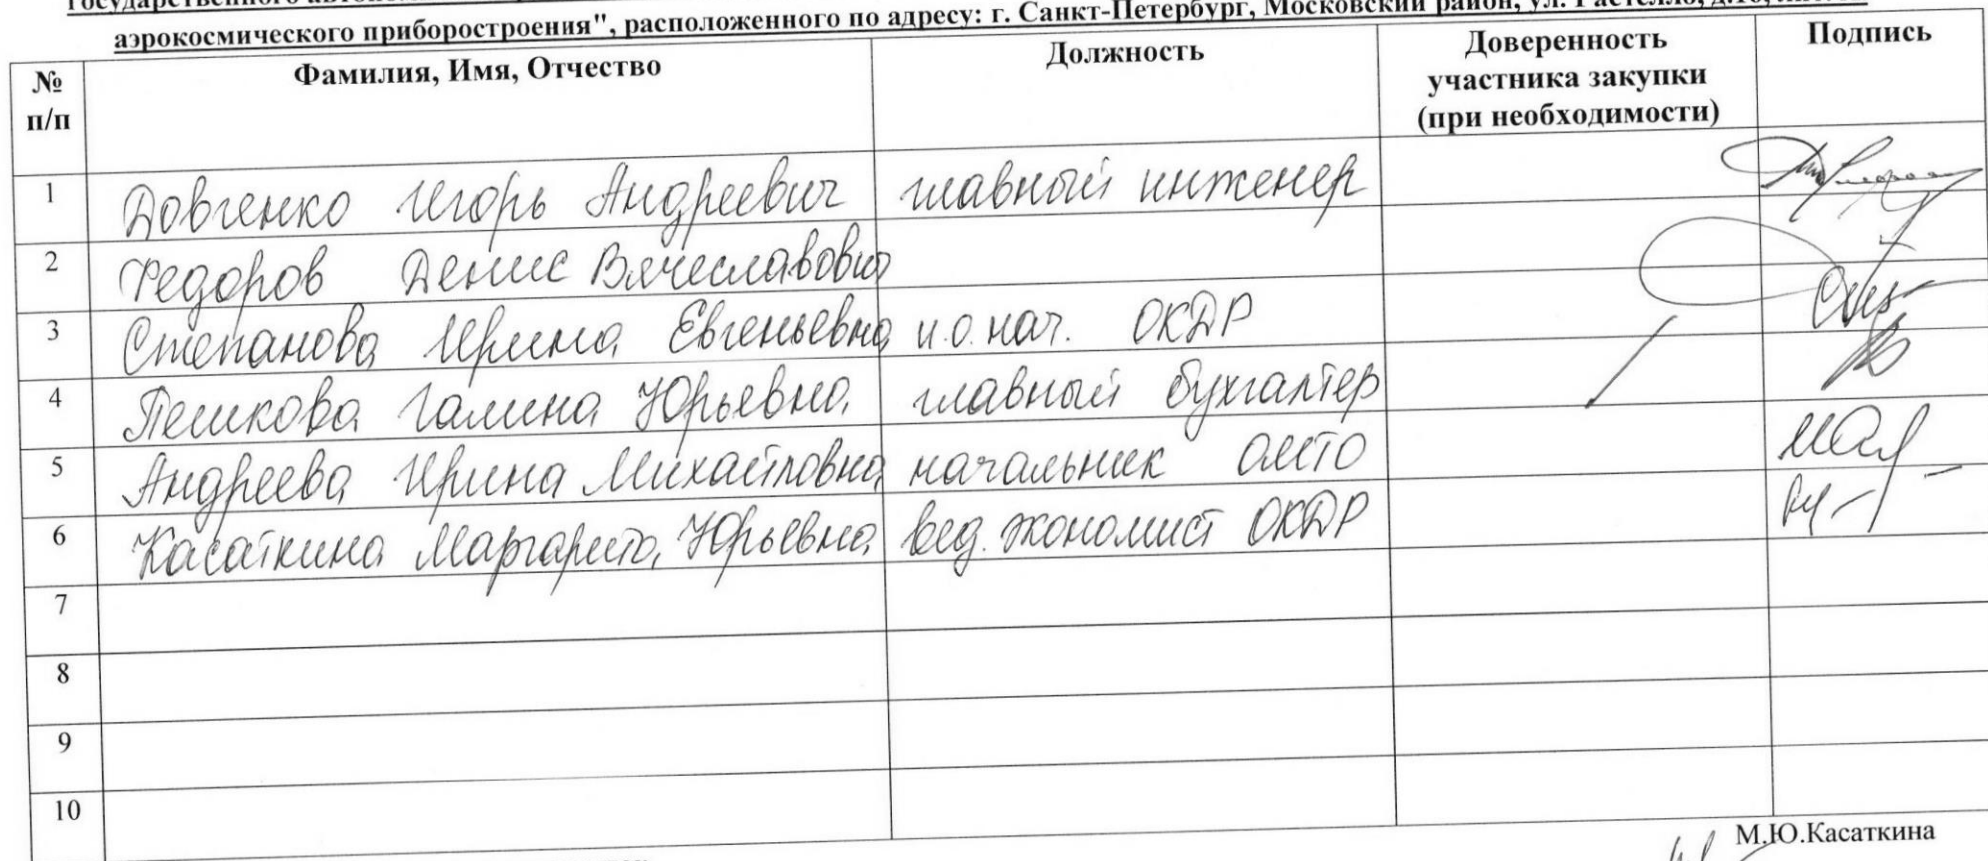 аэрокосмического приборостроения", расположенного по адресу: г. Санкт-Петербург, Московский район, ул. Гастелло, д.
№ п/п Фамилия, Имя, Отчество Должность Доверенность участника закупки (при необходимости) Подпись
1 Довгенко Игорь Андреевич главный инженер
2 Федоров Денис Вячеславович
3 Степанова Ирина Евгеньевна и.о. нач. ОКДР
4 Пешкова Галина Юрьевна главный бухгалтер
5 Андреева Ирина Михайловна начальник ОМТО
6 Касаткина Маргарита Юрьевна вед. экономист ОКДР
7
8
9
10
М.Ю.Касаткина